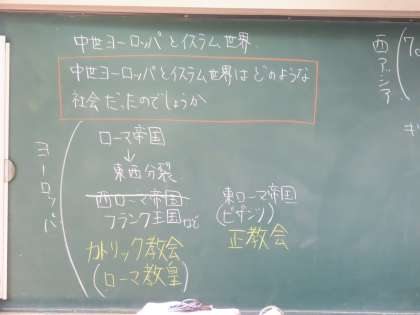 中世ヨーロッパとイスラム世界
中世ヨーロッパとイスラム世界はどのような
社会だったのでしょうか
ヨーロッパ
ローマ帝国
↓
東西分裂
西ローマ帝国
フランク王国など
カトリック教会
(ローマ教皇)
東ローマ帝国
(ビザンツ)
正教会
西アジア